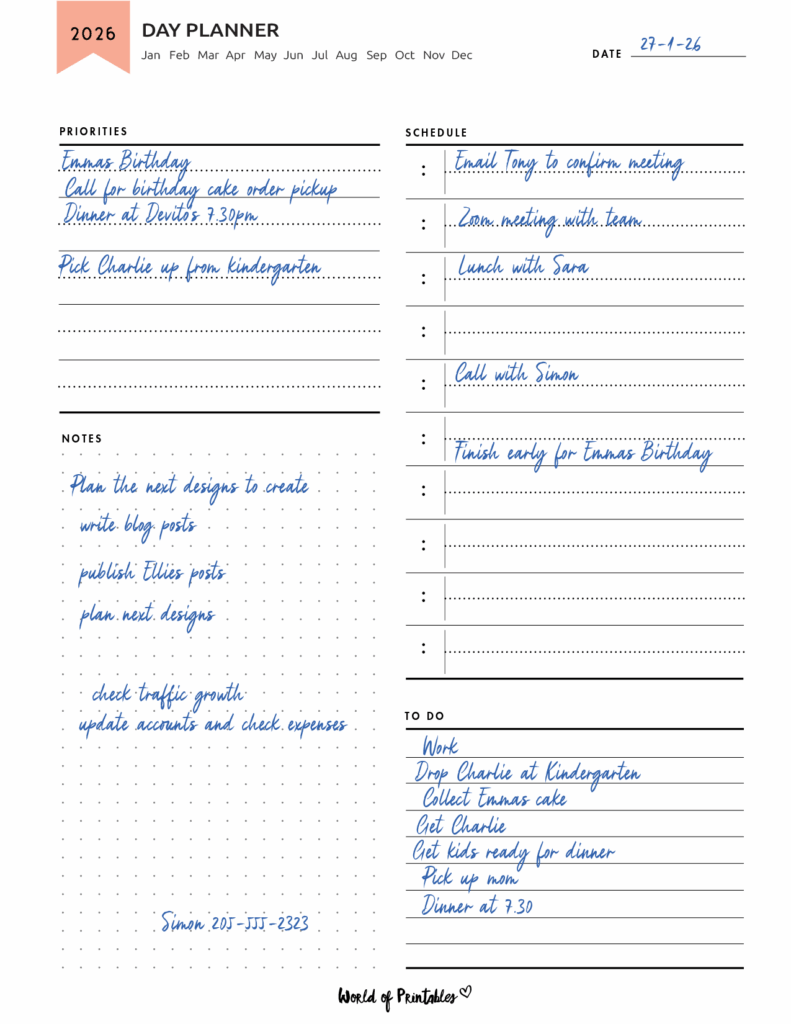 2026
DAY PLANNER
Jan Feb Mar Apr May Jun Jul Aug Sep Oct Nov Dec
DATE 27-1-26
PRIORITIES
Emmas Birthday
Call for birthday cake order pickup
Dinner at Devito's 7.30pm
Pick Charlie up from kindergarten
NOTES
Plan the next designs to create
write blog posts
publish Ellies posts
plan next designs
check traffic growth
update accounts and check expenses
Simon 205-555-2323
SCHEDULE
: Email Tony to confirm meeting
: Zoom meeting with team
: Lunch with Sara
:
: Call with Simon
: Finish early for Emmas Birthday
:
:
:
:
TO DO
Work
Drop Charlie at Kindergarten
Collect Emmas cake
Get Charlie
Get kids ready for dinner
Pick up mom
Dinner at 7.30
World of Printables